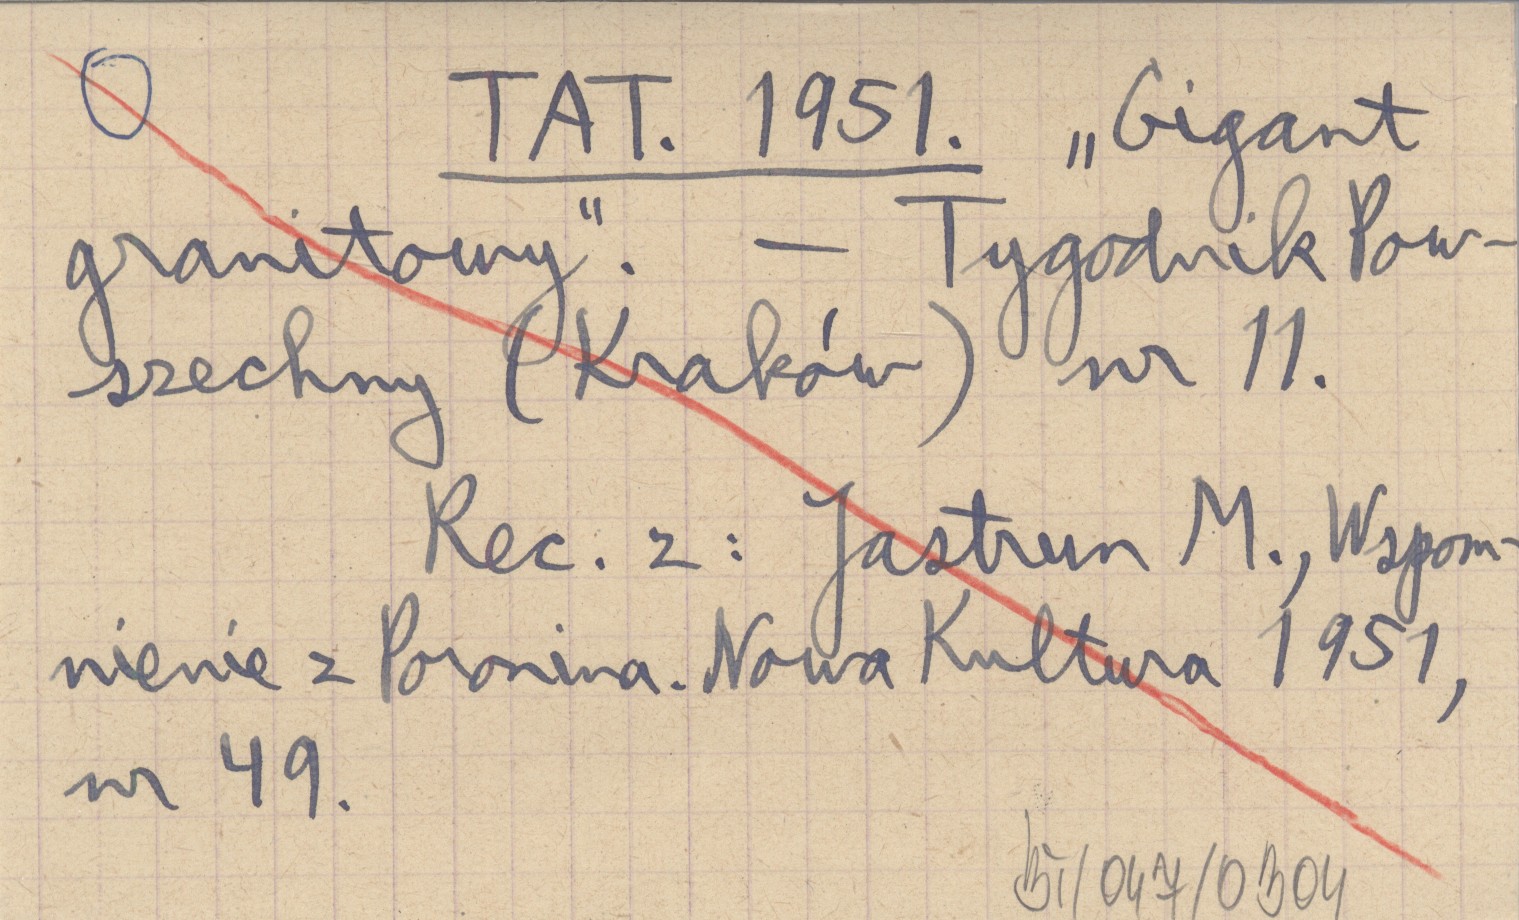 TAT. 1951. „Gigant
granitowy". — Tygodnik Pow-
szechny (Kraków) nr 11.
Rec. z: Jastrun M., Wspom-
nienie z Poronina. Nowa Kultura 1951,
nr 49.
/047/0304